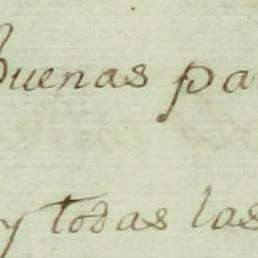 buenas pa
y todas las